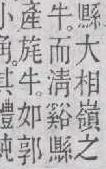 縣大相嶺之
牛。而清谿縣
產旄牛。如郭
小角。其體純